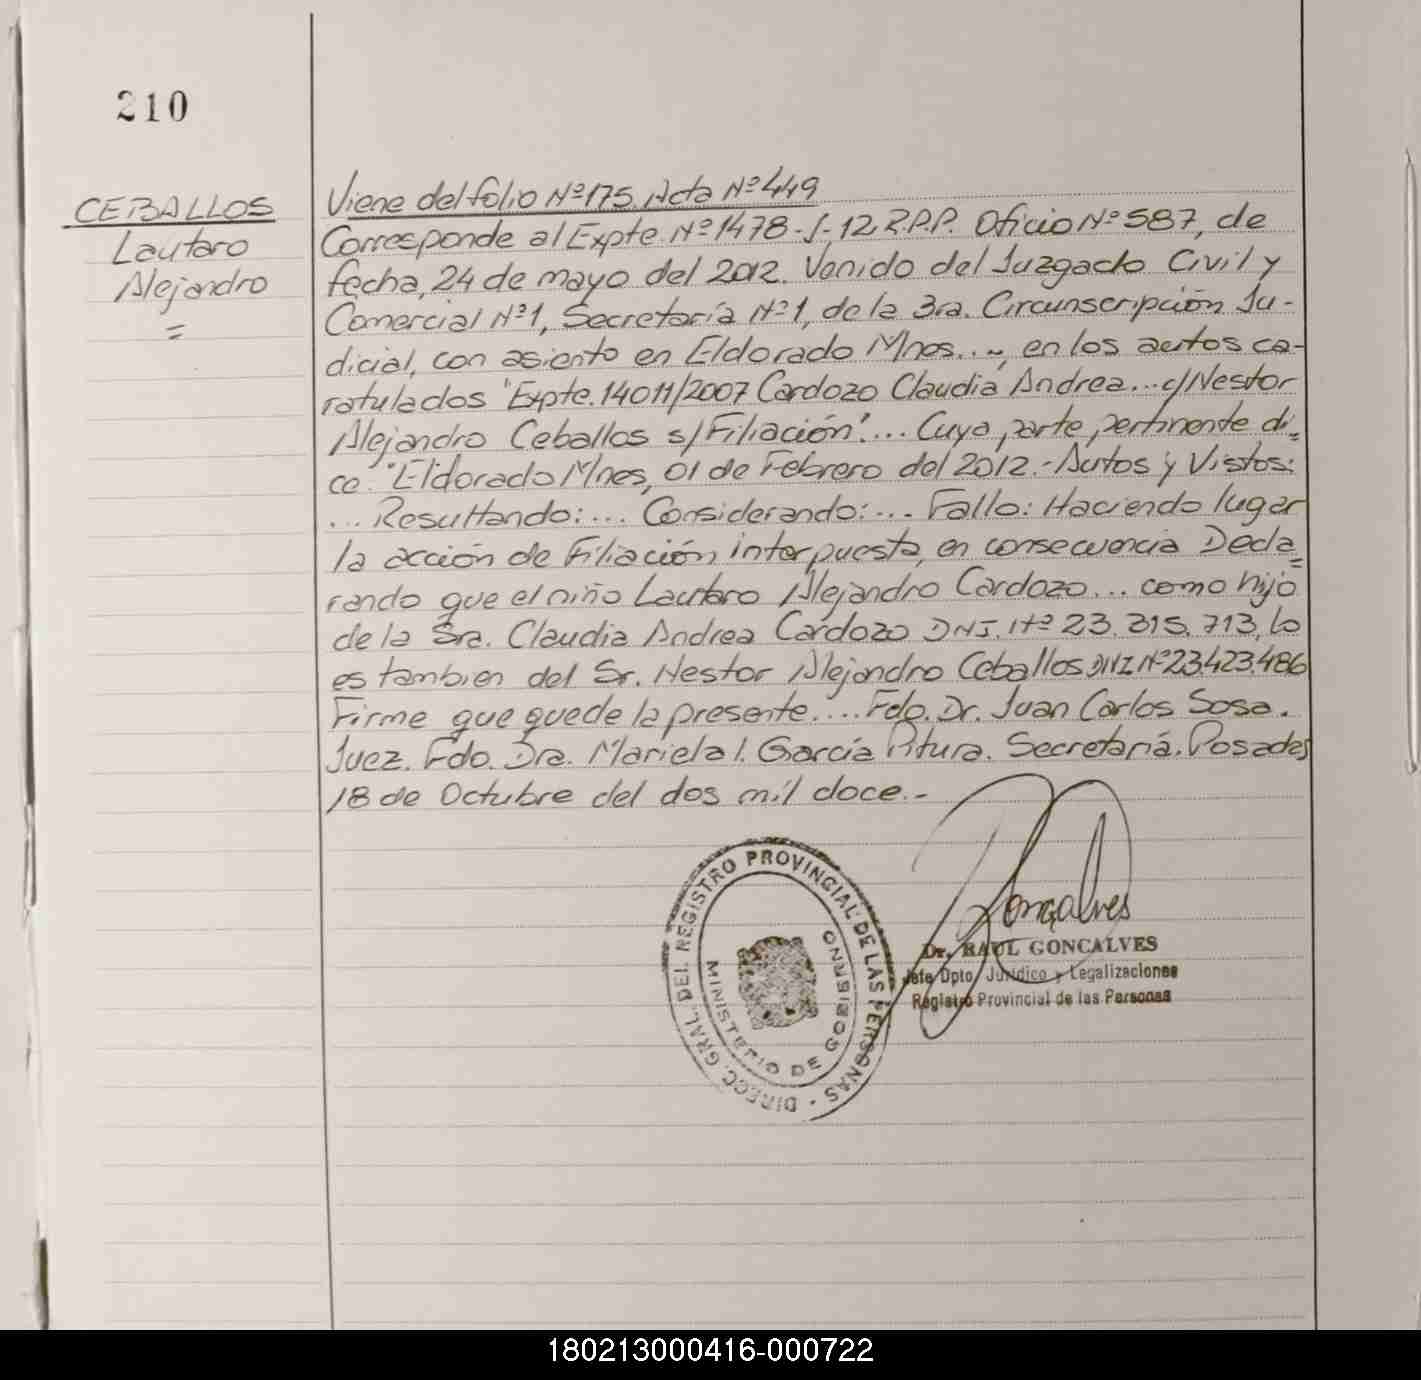 210
CEBALLOS
Lautaro
Alejandro
=
Viene del folio Nº175. Acta Nº449
Corresponde al Expte. Nº1478-J-12.R.P.P. Oficio Nº587, de
fecha, 24 de mayo del 2012. Venido del Juzgado Civil y
Comercial Nº1, Secretaría Nº1, de la 3ra. Circunscripción Ju-
dicial, con asiento en Eldorado Mnes..., en los autos ca-
ratulados "Expte. 14011/2007 Cardozo Claudia Andrea... c/Nestor
Alejandro Ceballos s/Filiación"... Cuya parte pertinente di=
ce. "Eldorado Mnes, 01 de Febrero del 2012.- Autos y Vistos:
... Resultando:... Considerando:... Fallo: Haciendo lugar
la acción de Filiación interpuesta, en consecuencia Decla=
rando que el niño Lautaro Alejandro Cardozo... como hijo
de la Sra. Claudia Andrea Cardozo DNI. Nº 23.315.713, lo
es tambien del Sr. Nestor Alejandro Ceballos DNI Nº23.423.486
Firme que quede la presente.... Fdo. Dr. Juan Carlos Sosa.
Juez. Fdo. Dra. Mariela I. García Pitura. Secretaria. Posadas
18 de Octubre del dos mil doce.-
DIRECC. GRAL. DEL REGISTRO PROVINCIAL DE LAS PERSONAS -
MINISTERIO DE GOBIERNO
Gonçalves
Dr. RAUL GONCALVES
Jefe Dpto. Jurídico y Legalizaciones
Registro Provincial de las Personas
180213000416-000722